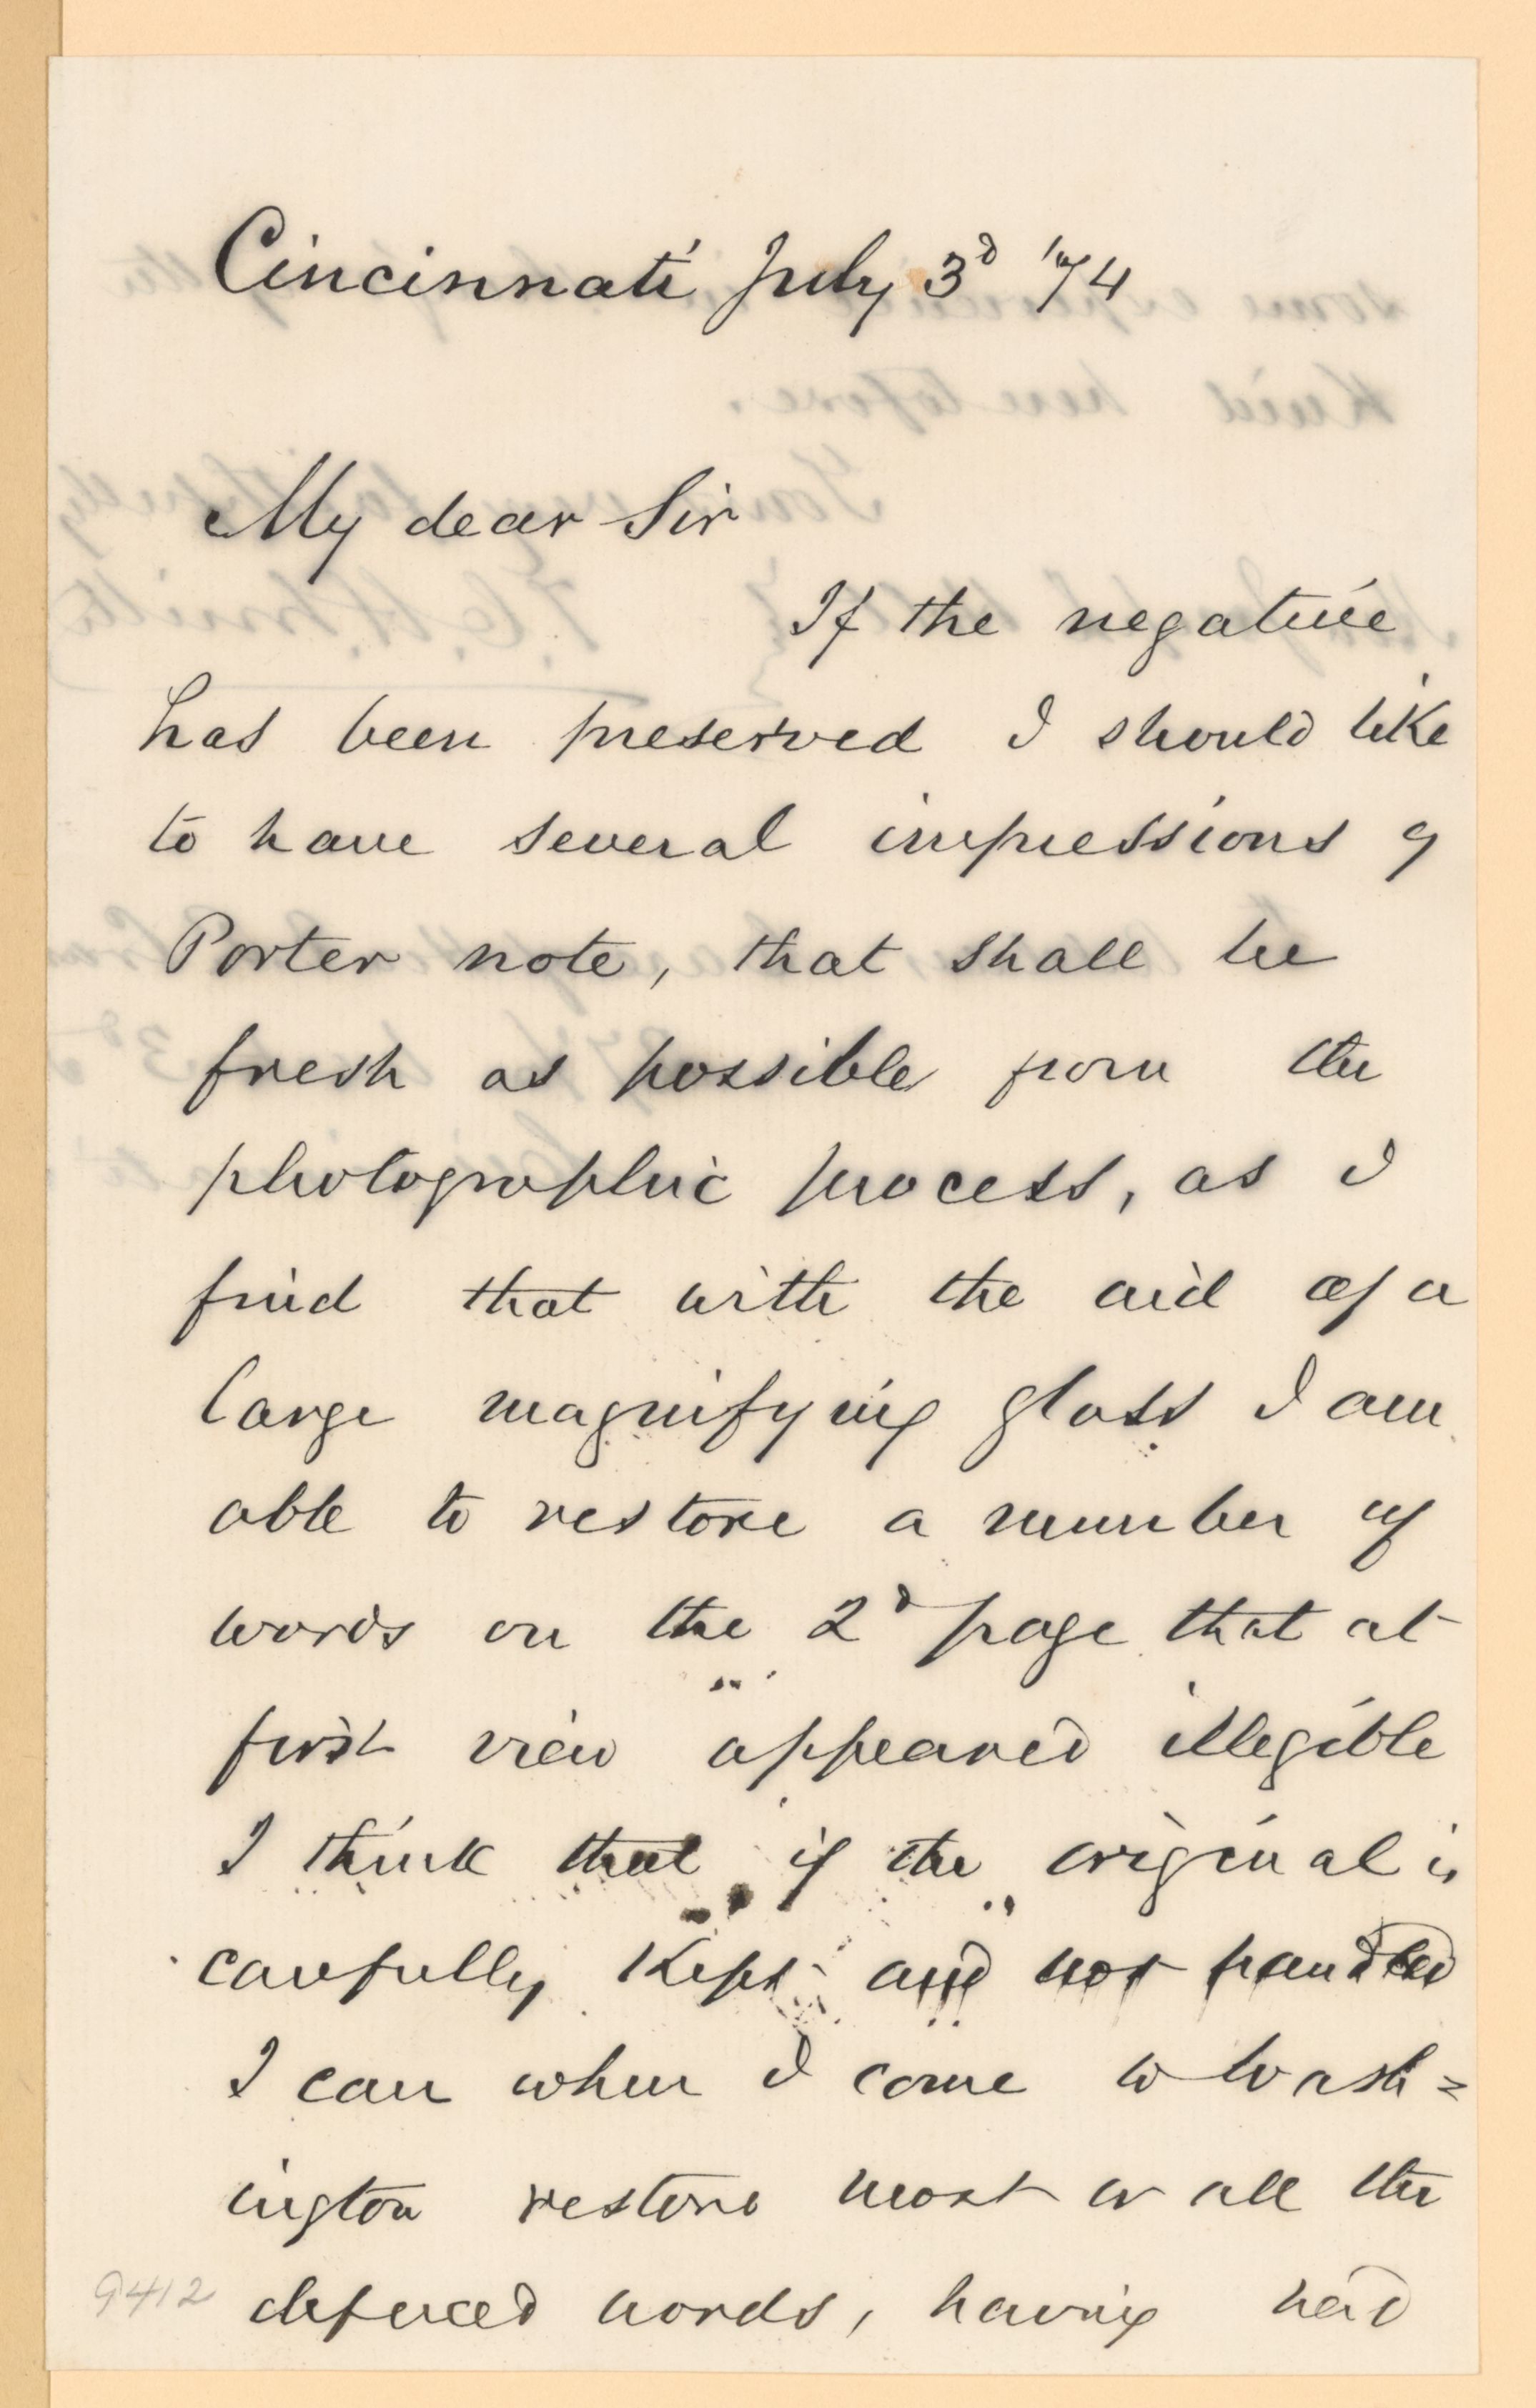 Cincinnati July 3d '74
My dear Sir
If the negative
has been preserved I should like
to have several impressions of
Porter note, that shall be
fresh as possible from the
photographic process, as I
find that with the aid of a
large magnifying glass I am
able to restore a number of
words on the 2d page that at
first view appeared illegible
I think that if the original is
carefully kept and not handled
I can when I come to Wash=
ington restore most or all the
defaced words, having had
9412